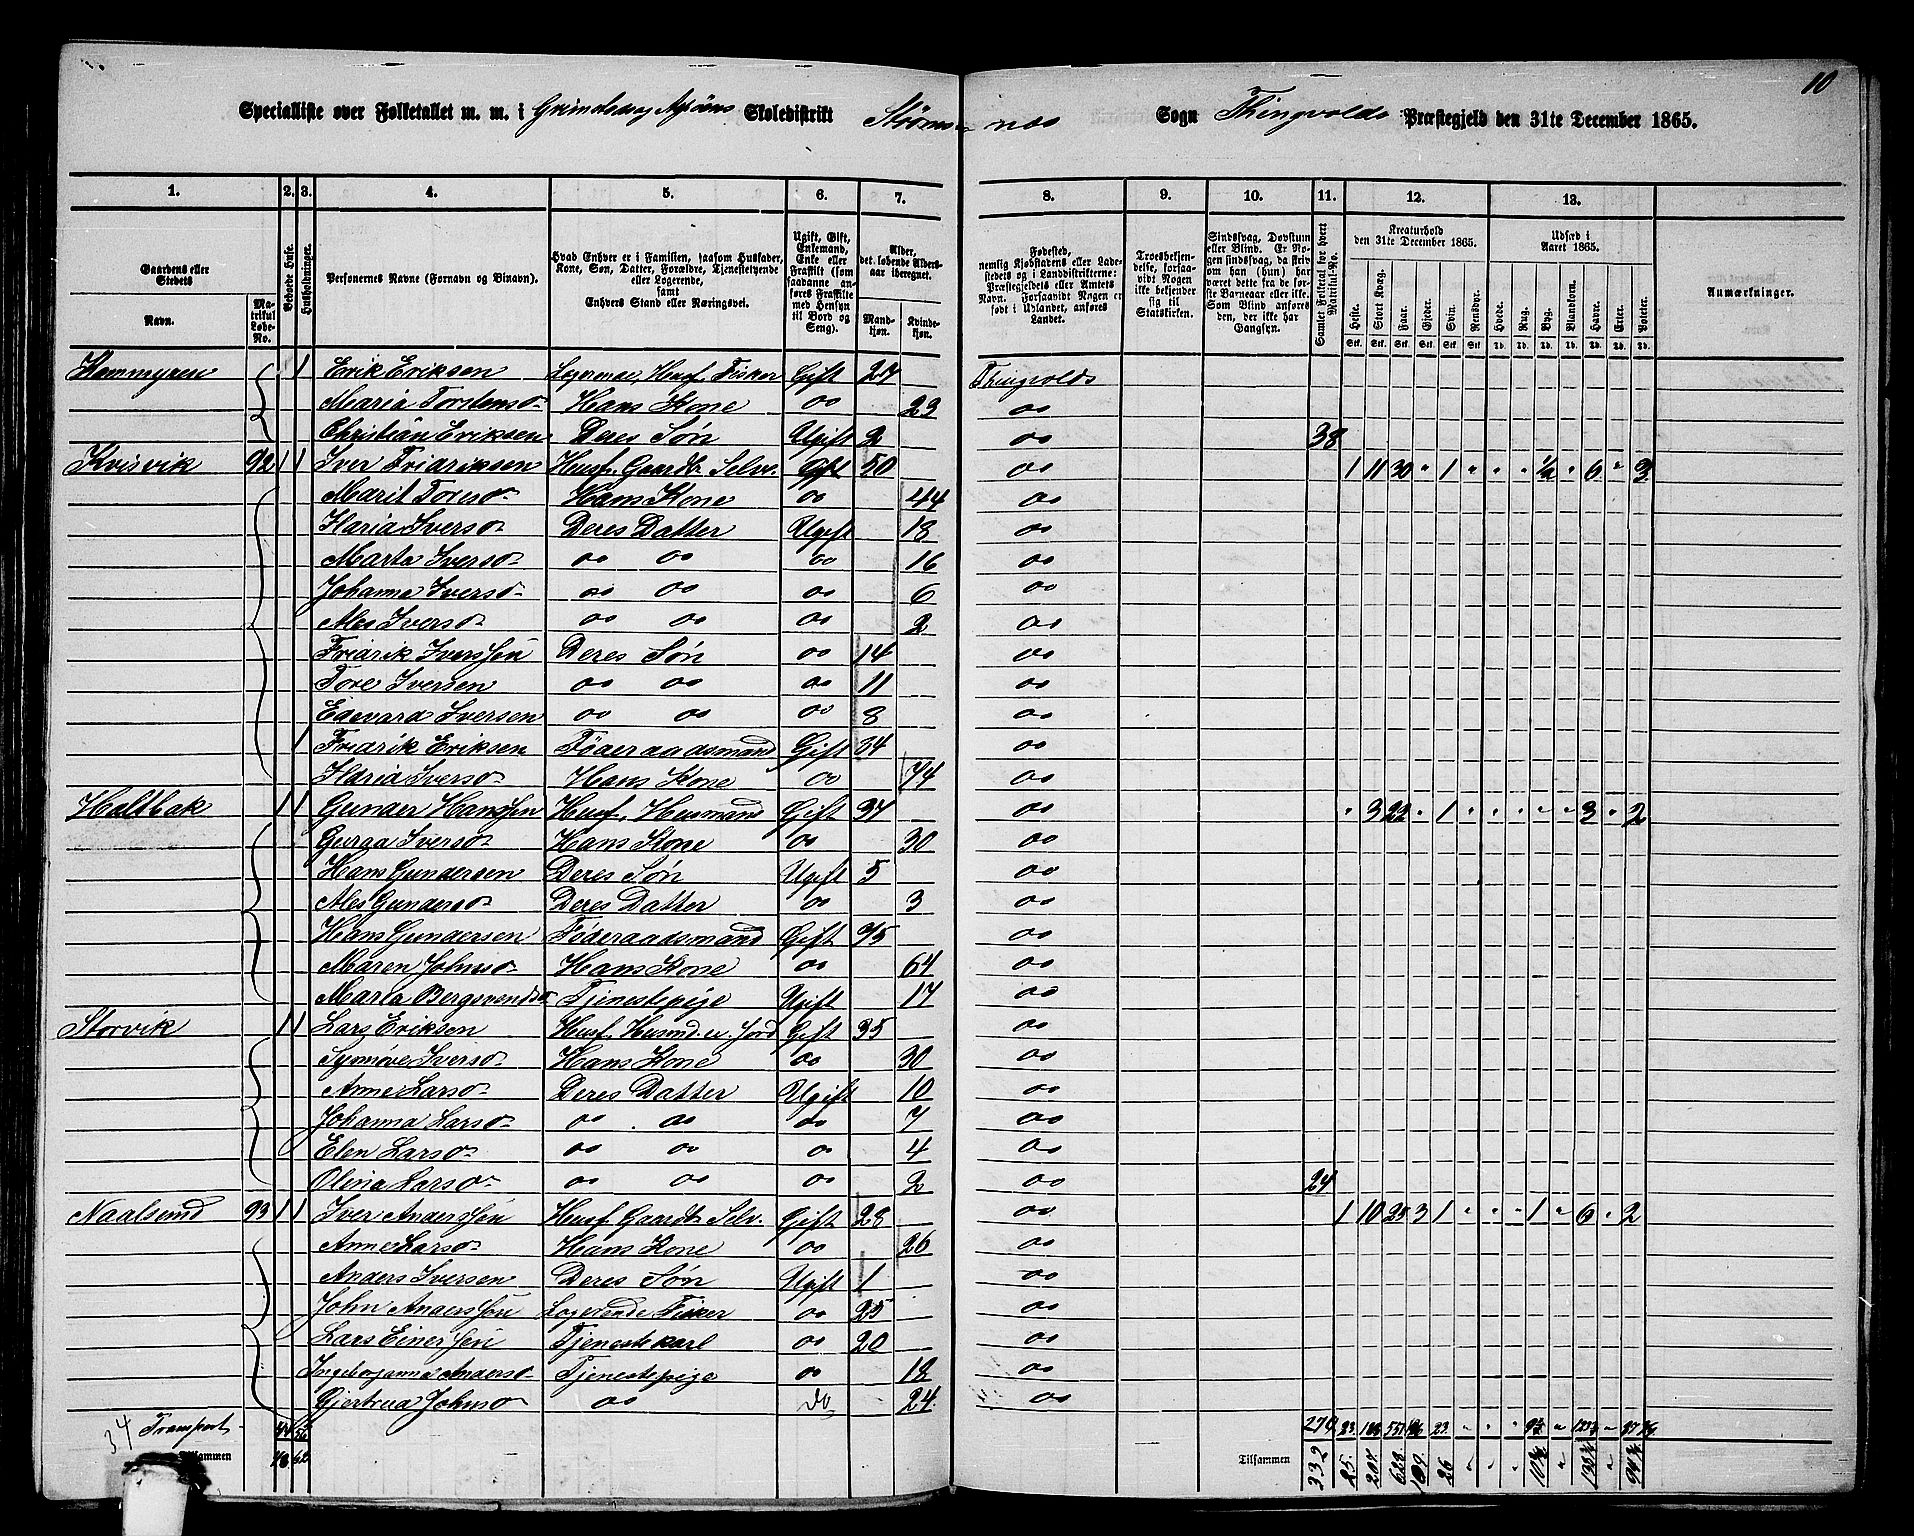 10
Specialliste over Folketallet m. m. i Grimdens og Aspøens Skoledistrikt Strømsnæs Sogn Thingvolds Præstegjeld den 31te December 1865.
1. 2. 3. 4. 5. 6. 7. 8. 9. 10. 11. 12. 13.
Gaardens eller Stedets Navn.
Matrikul Løbe-No.
Beboede Huse.
Husholdninger.
Personernes Navne (Fornavn og Binavn).
Hvad Enhver er i Familien, saasom Husfader, Kone, Søn, Datter, Forældre, Tjenestetyende eller Logerende, samt Enhvers Stand eller Næringsvei.
Ugift, Gift, Enkemand, Enke eller Fraskilt (som saadanne anføres Fraskilte med Hensyn til Bord og Seng).
Alder, det løbende Aldersaar iberegnet.
Mandkjøn. Kvindekjøn.
Fødested, nemlig Kjøbstadens eller Ladestedets og i Landdistrikterne: Præstegjeldets eller Amtets Navn. Forsaavidt Nogen er født i Udlandet, anføres Landet.
Troesbekjendelse, forsaavidt Nogen ikke bekjender sig til Statskirken.
Sindssvag, Døvstum eller Blind. Er Nogen sindssvag, da skriv om han (hun) har været dette fra de første Barneaar eller ikke. Som Blind anføres den, der ikke har Gangsyn.
Samlet Folketal for hvert Matrikul-No.
Kreaturhold den 31te December 1865.
Heste. Stort Kvæg. Faar. Gjeder. Svin. Rensdyr.
Udsæd i Aaret 1865.
Hvede. Rug. Byg. Blandkorn. Havre. Erter. Poteter.
Anmærkninger.
Hammyren 1 Erik Eriksen Logerende, Husf. Fisker Gift 27 Thingvolds
Maria Torstensd. Hans Kone do 23 do
Christian Eriksen Deres Søn Ugift 2 do 38
Kvisvik 92 1 1 Iver Fridriksen Husf. Gaardb. Selv. Gift 50 do 1 11 30 " 1 " " " 1/2 " 6 " 3
Marit Toresd. Hans Kone do 44 do
Maria Iversd. Deres Datter Ugift 18 do
Marta Iversd. do do do 16 do
Johanna Iversd. do do do 6 do
Ales Iversd. do do do 2 do
Fridrik Iverssen Deres Søn do 14 do
Tore Iversen do do do 11 do
Edevard Iversen do do do 8 do
1 Fridrik Eriksen Føderaadsmand Gift 84 do
Maria Iversd. Hans Kone do 74 do
Haltbak 1 1 Gunder Hanssen Husf. Husmand Gift 37 do " 3 22 " 1 " " " " " 3 " 2
Guraa Iversd. Hans Kone do 30 do
Hans Gundersen Deres Søn Ugift 5 do
Ales Gundersd. Deres Datter do 3 do
Hans Gundersen Føderaadsmand Gift 75 do
Maren Johnsd. Hans Kone do 64 do
Maria Bergsvendsd. Tjenestepige Ugift 17 do
Storvik 1 1 Lars Eriksen Husf. Husmd. m. Jord Gift 35 do
Synnøve Iversd. Hans Kone do 30 do
Anne Larsd. Deres Datter Ugift 10 do
Johanna Larsd. do do do 7 do
Elen Larsd. do do do 4 do
Olina Larsd. do do do 2 do 24
Naalsund 93 1 1 Iver Anderssen Husf. Gaardb. Selv. Gift 28 do 1 10 25 3 1 " " " 1 " 6 " 2
Anne Larsd. Hans Kone do 26 do
Anders Iversen Deres Søn Ugift 1 do
John Anderssen Logerende Fisker do 25 do
Lars Einerssen Tjenestekarl do 20 do
Ingeborganna Andersd. Tjenestepige do 18 do
Gjertrud Johnsd. do do 24 do
34 Transport 44 56 270 23 23
Tilsammen 48 62 Tilsammen 332 25. 207. 628 109. 26 " " " 10 1/2 " " 94 1/2